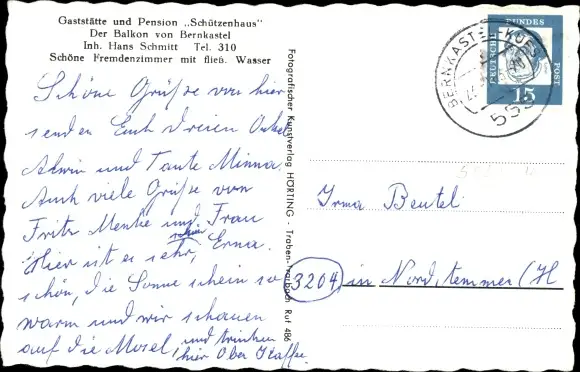 Gaststätte und Pension „Schützenhaus"
Der Balkon von Bernkastel
Inh. Hans Schmitt Tel. 310
Schöne Fremdenzimmer mit fließ. Wasser
Schöne Grüße von hier
senden Euch dreien Onkel
und Tante Minna.
Auch viele Grüße von
Fritz Menke und Frau
Erna.
Hier ist es sehr, schön
schön, die Sonne schein so
warm und wir schauen
auf die Mosel, und trinken
hier Ober Kaffe.
Fotografischer Kunstverlag HORTING · Traben-Trarbach Ruf 486
BERNKASTEL-KUES
555
DEUTSCHE BUNDES POST
15
Irma Beutel
3204 in Nordstemmen (H